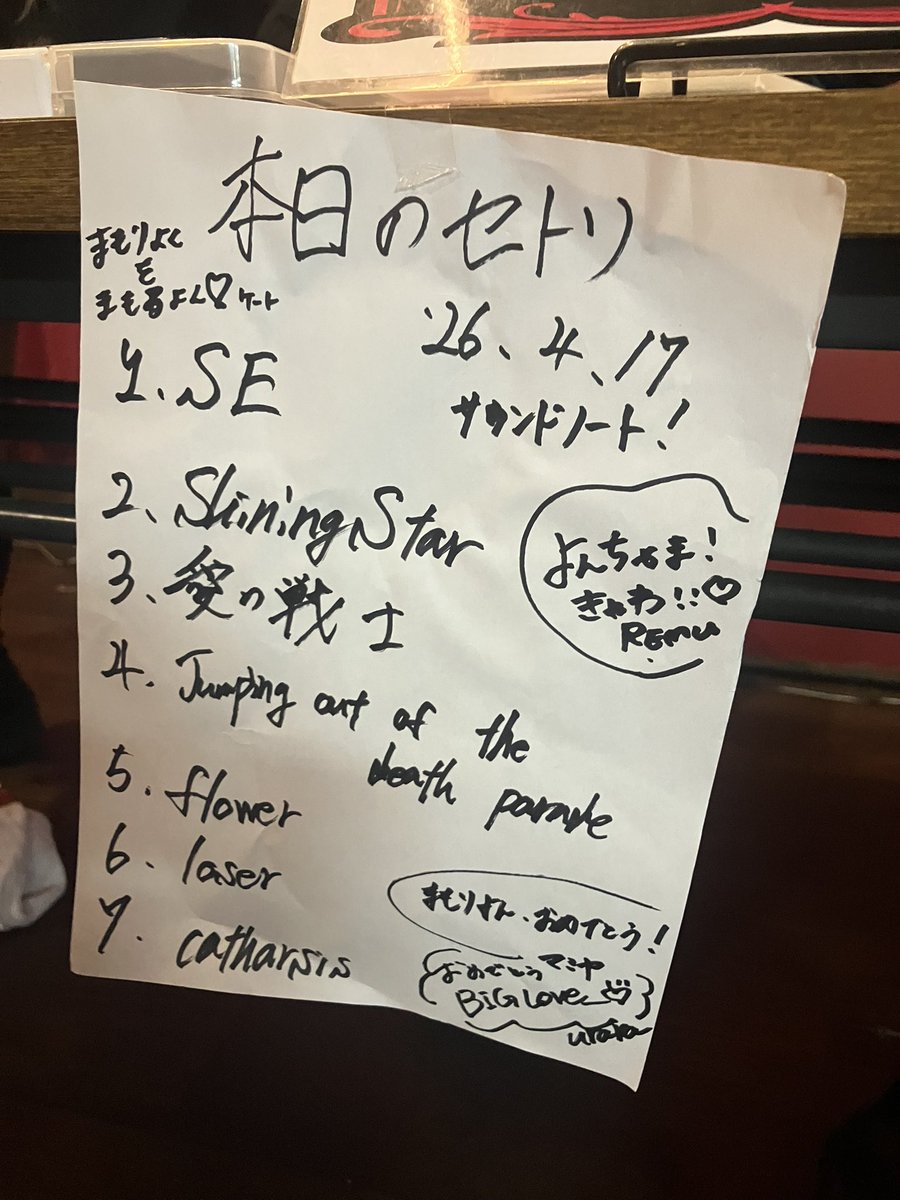 本日のセトリ
まもりよく
を
まもるよく♡ ケート
'26、4、17
サウンドノート!
1. SE
2、Shining Star
3、愛の戦士
4. Jumping out of the
death parade
5. flower
6. laser
7. catharsis
よんちゃま!
きゃわ!!♡
REMU
まもりよん、おめでとう!
おめでとう マミヤ
BiG Love
urara